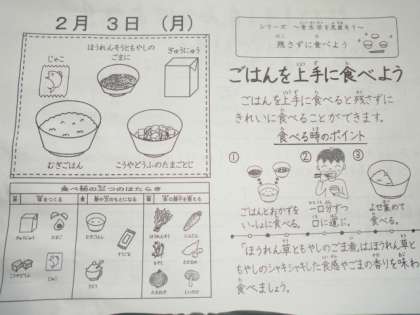 2月 3日 (月)
ほうれんそうともやしの
ごまに
ぎゅうにゅう
じゃこ
むぎごはん
こうやどうふのたまごとじ
食べ物の三つのはたらき
シリーズ ～食生活を見直そう～
残さずに食べよう
ごはんを上手に食べよう
ごはんを上手に食べると残さずに
きれいに食べることができます。
食べる時のポイント
① ② ③
ごはんとおかずを
いっしょに食べる。
一口分ずつ
口に運ぶ。
よせ集めて
食べる。
「ほうれん草ともやしのごま煮」はほうれん草と
もやしのシャキシャキした食感やごまの香りを味わって
食べましょう。